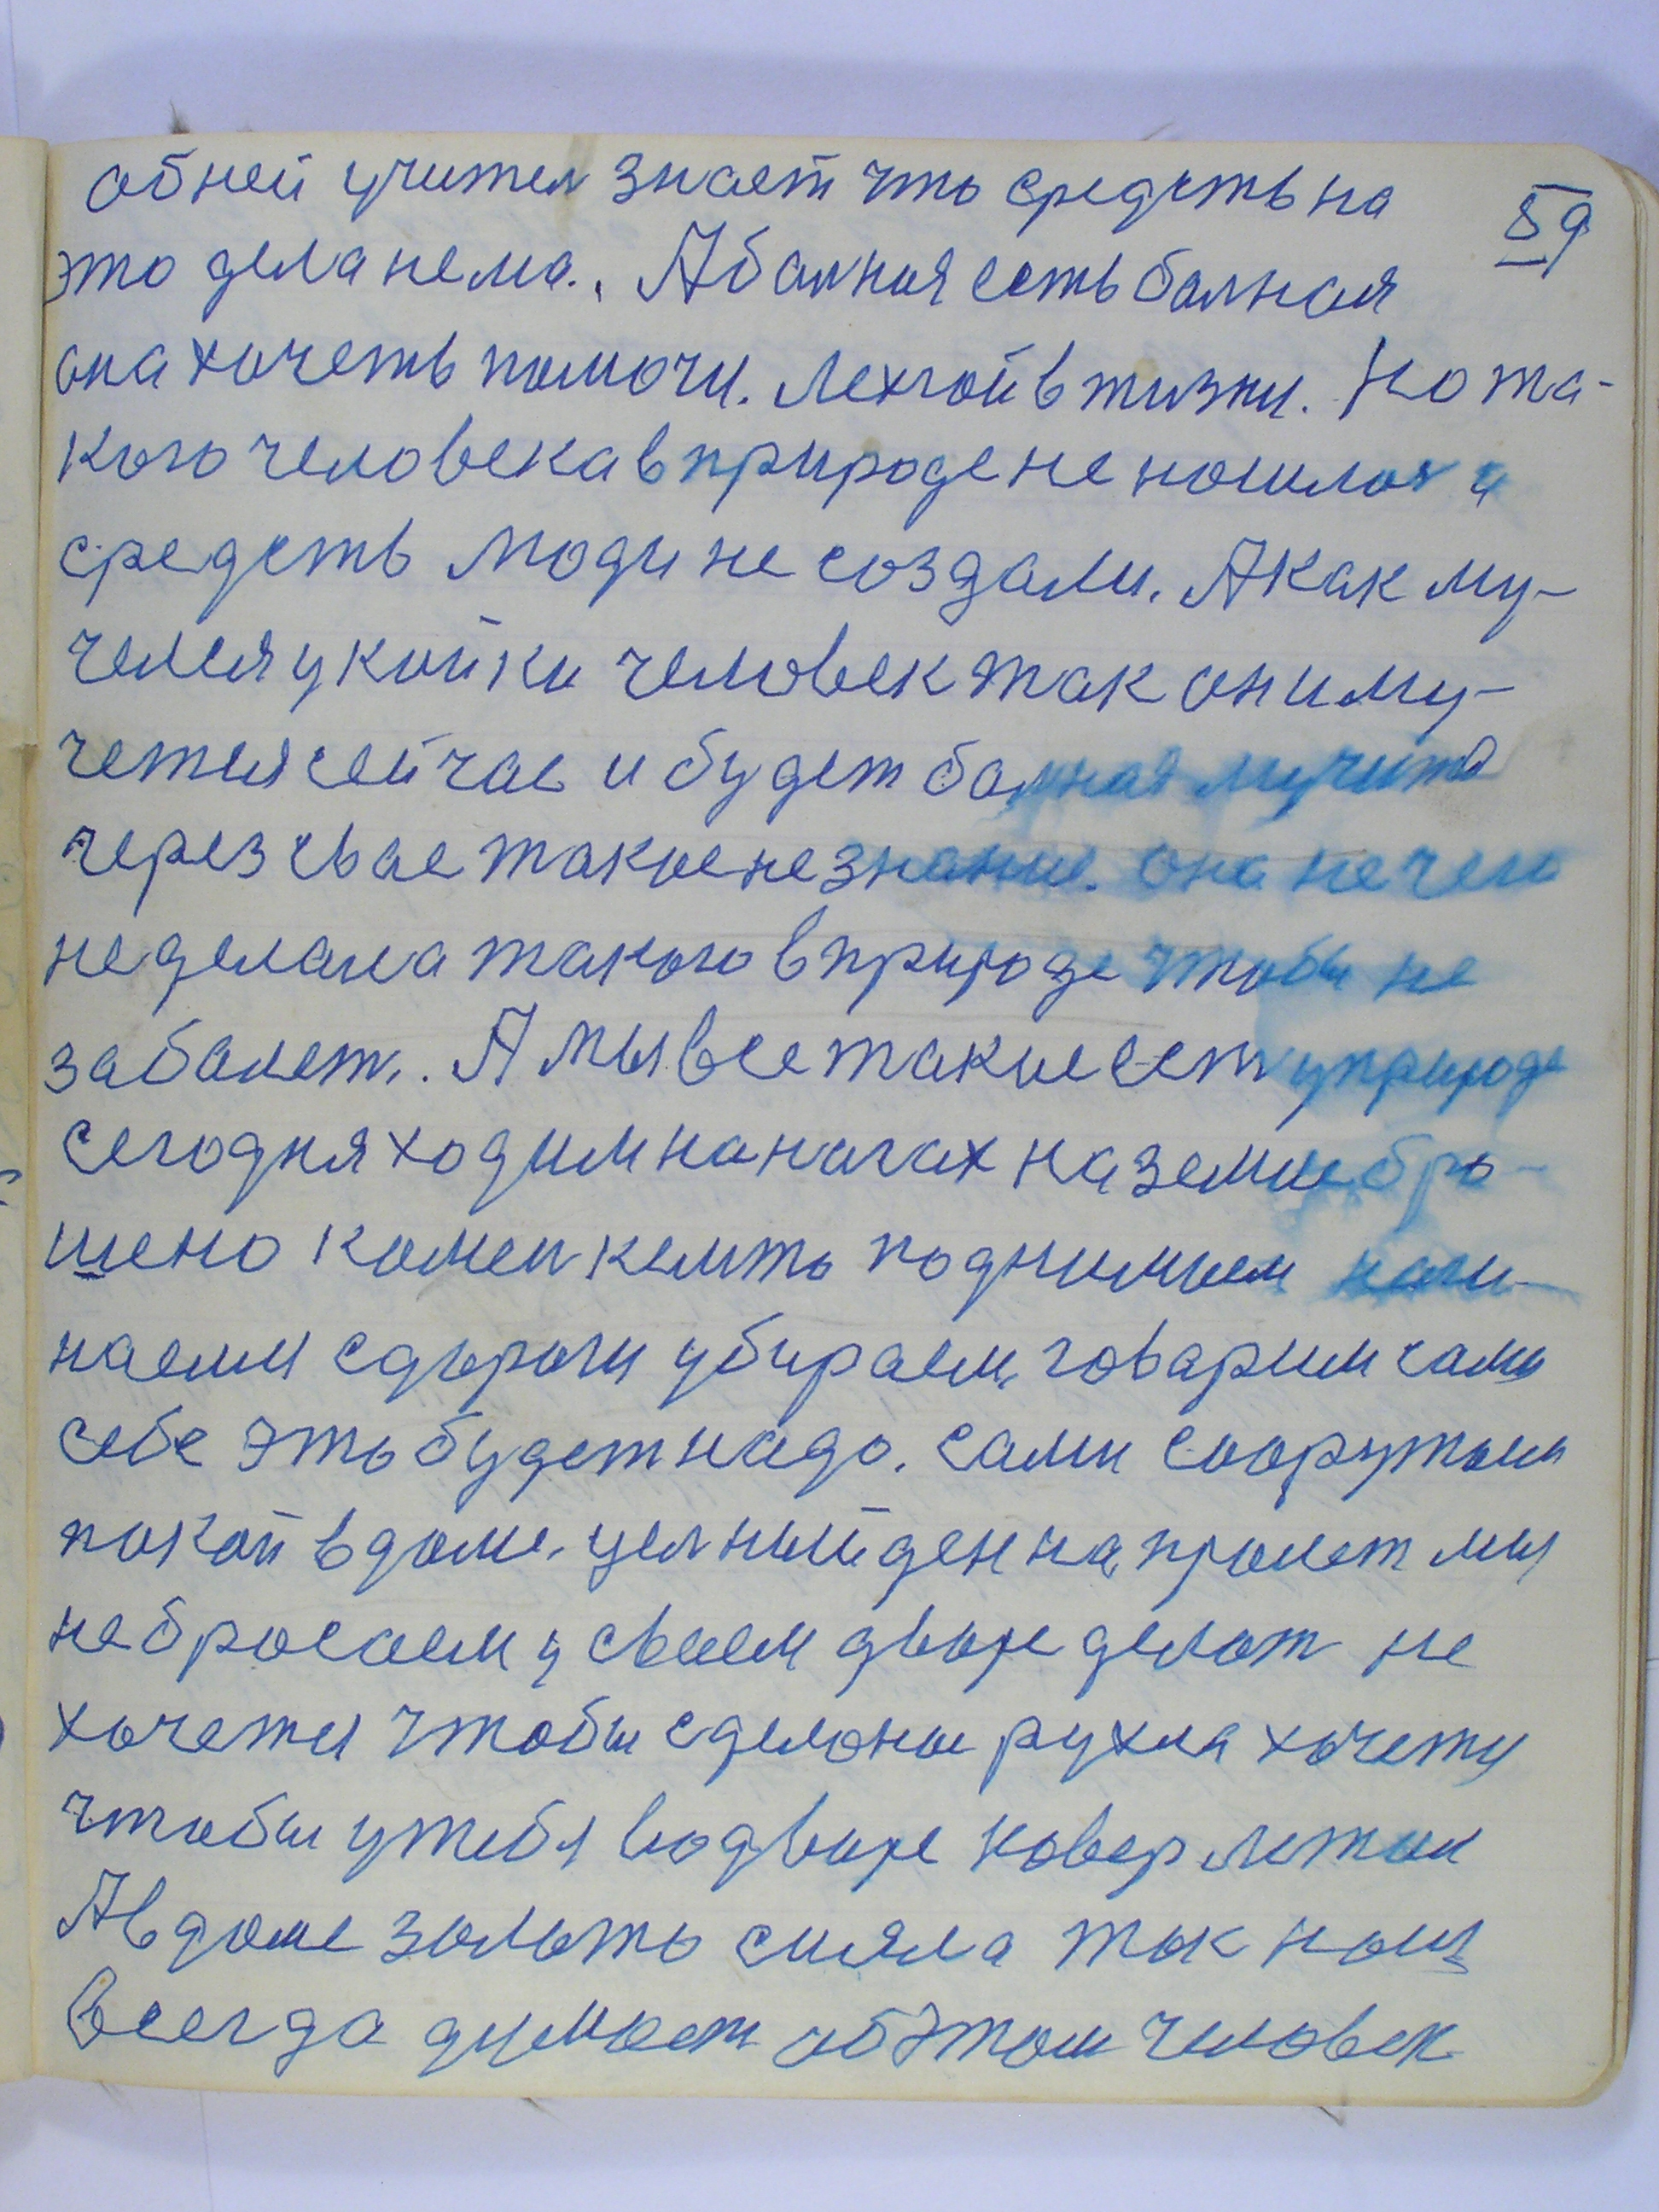 обней учител знает что средств на
59
это дела нема. Абалная есть балная
она хочеть помочи. Лехкой в жизни. Но та-
кого человека в природе не нашлося и
средств люди не создали. А как му-
челся у койки человек так он и му-
чется сейчас и будет балная мучится
через свае такое незнание. она нечего
не делала такого в природе чтобы не
заболет. А мы все такие ест у природе
сегодня ходим на ногах на земле бро-
шено камен кемто поднимаем наги-
наемся з дороги убираем, говарим сами
себе это будет надо. сами сооружаем
покой в доме. целный ден на пролет мы
не бросаем у своем дворе делат не
хочется чтобы сделоные рухла хочется
чтобы у тебя во дворе ковер лежал
А в доме золото сияла так наш
всегда думает об этом человек